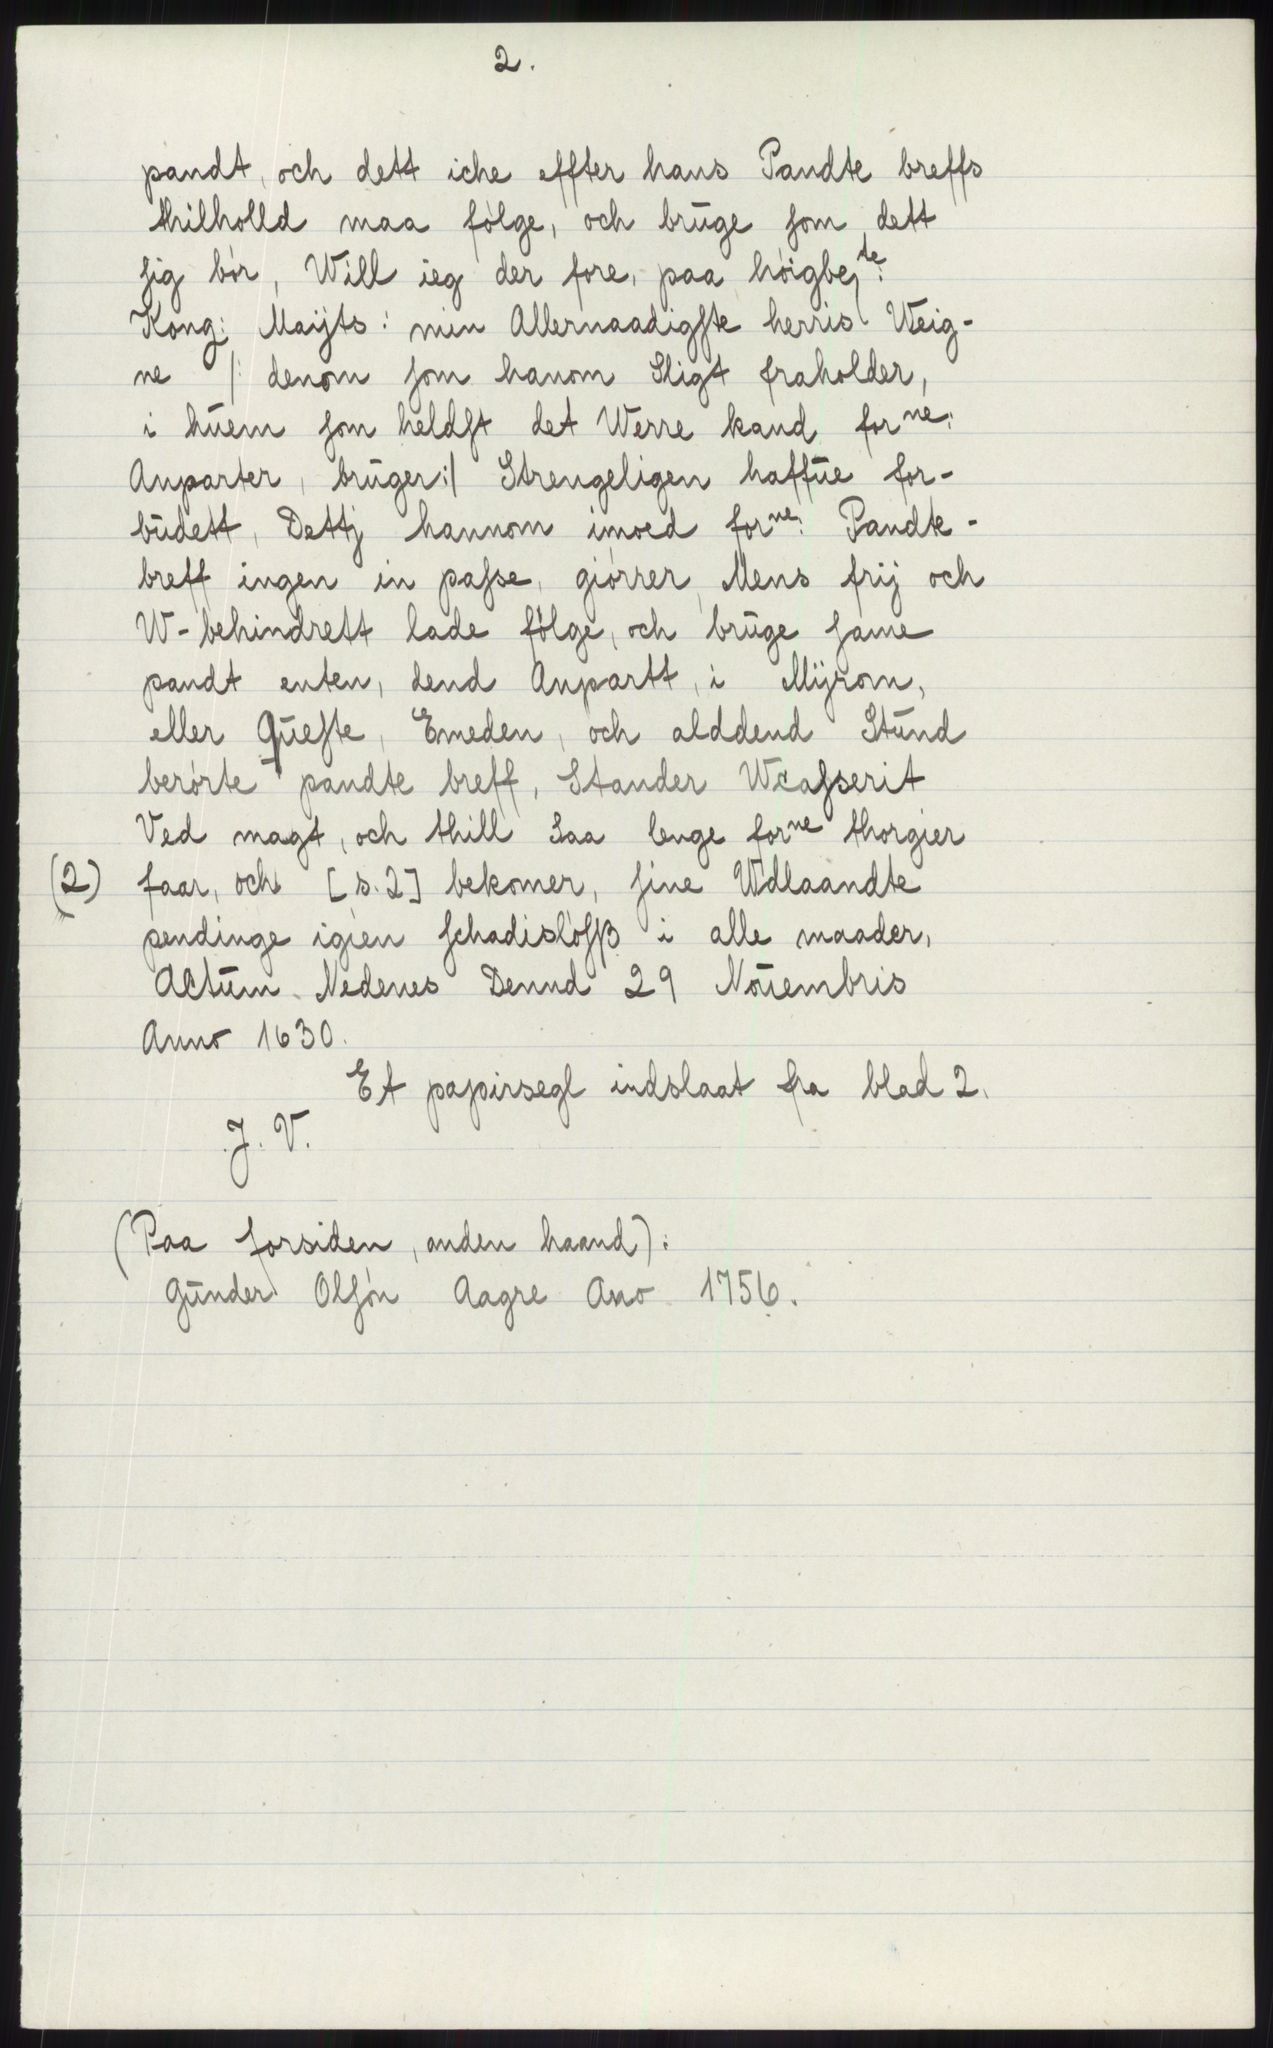 2.
pandt, och dett iche effter hans Pandte breffs
thilholld maa følge, och brūge ſom dett
ſig bør, Will ieg der fore, paa høigbeᵗᵉ:
Kong: Maijts: min Allernaadigſte herris Weig-
ne /: denom ſom hanom Sligt fraholder,
i hūem ſom heldſt det Werre kand forⁿᵉ:
Anparter, brūger:/ Strengeligen haffūe for-
būdett, Dettj hannom imoed forⁿᵉ: Pandte-
breff ingen in paſse, giørrer, Mens frij och
W-behindrett lade følge, och brūge ſame
pandt enten, dend Anpartt, i Mijrom,
eller Qūeſte, Emeden, och alddend Stūnd
berørte pandte breff, Stander Wcaſserit
Ved magt, och thill Saa lenge forⁿᵉ thorgier
(2) faar, och [s. 2] bekomer, ſine Wdlaandte
pendinge igien ſchadisløſß i alle maader,
Actūm Nedenes Dennd 29 Noūembris
Anno 1630.
Et papirsegl indslaat fra blad 2.
J. V.
(Paa forsiden, anden haand):
Gūnder Olſøn Aagre Ano 1756.